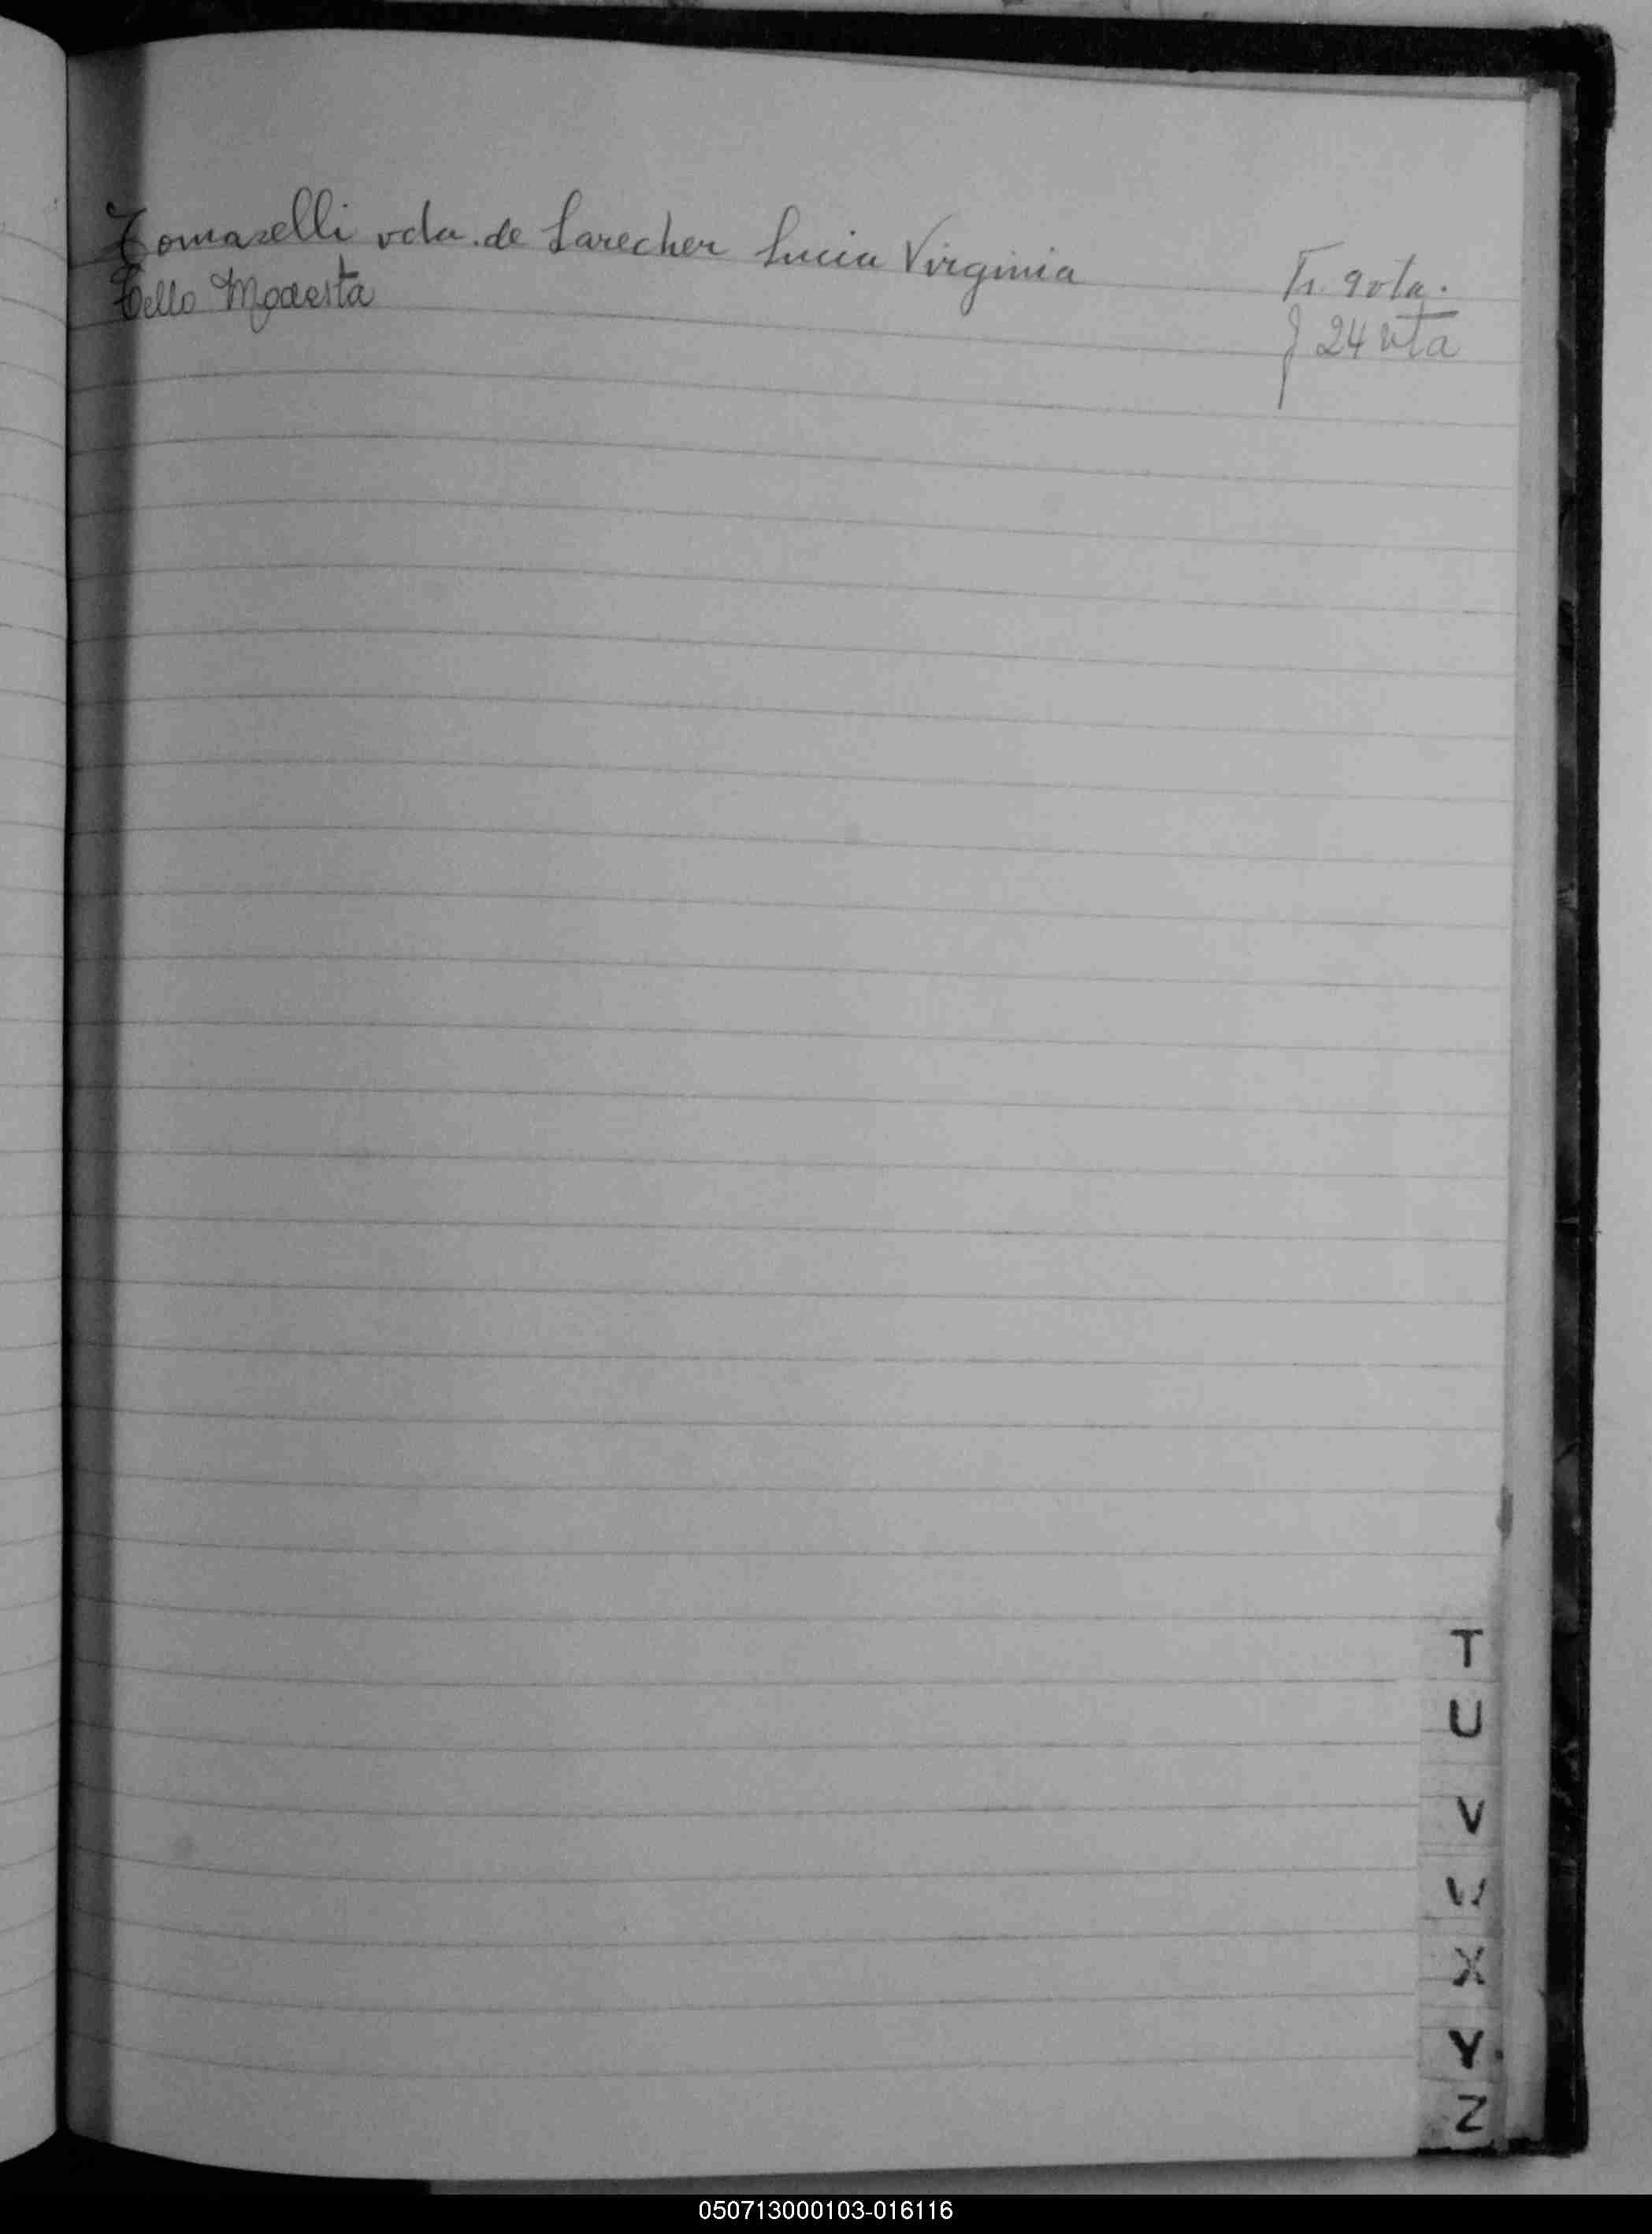 Tomaselli vda. de Larecher Lucia Virginia Fs. 9 vta.
Tello Modesta f 24 vta
T
U
V
W
X
Y
Z
050713000103-016116